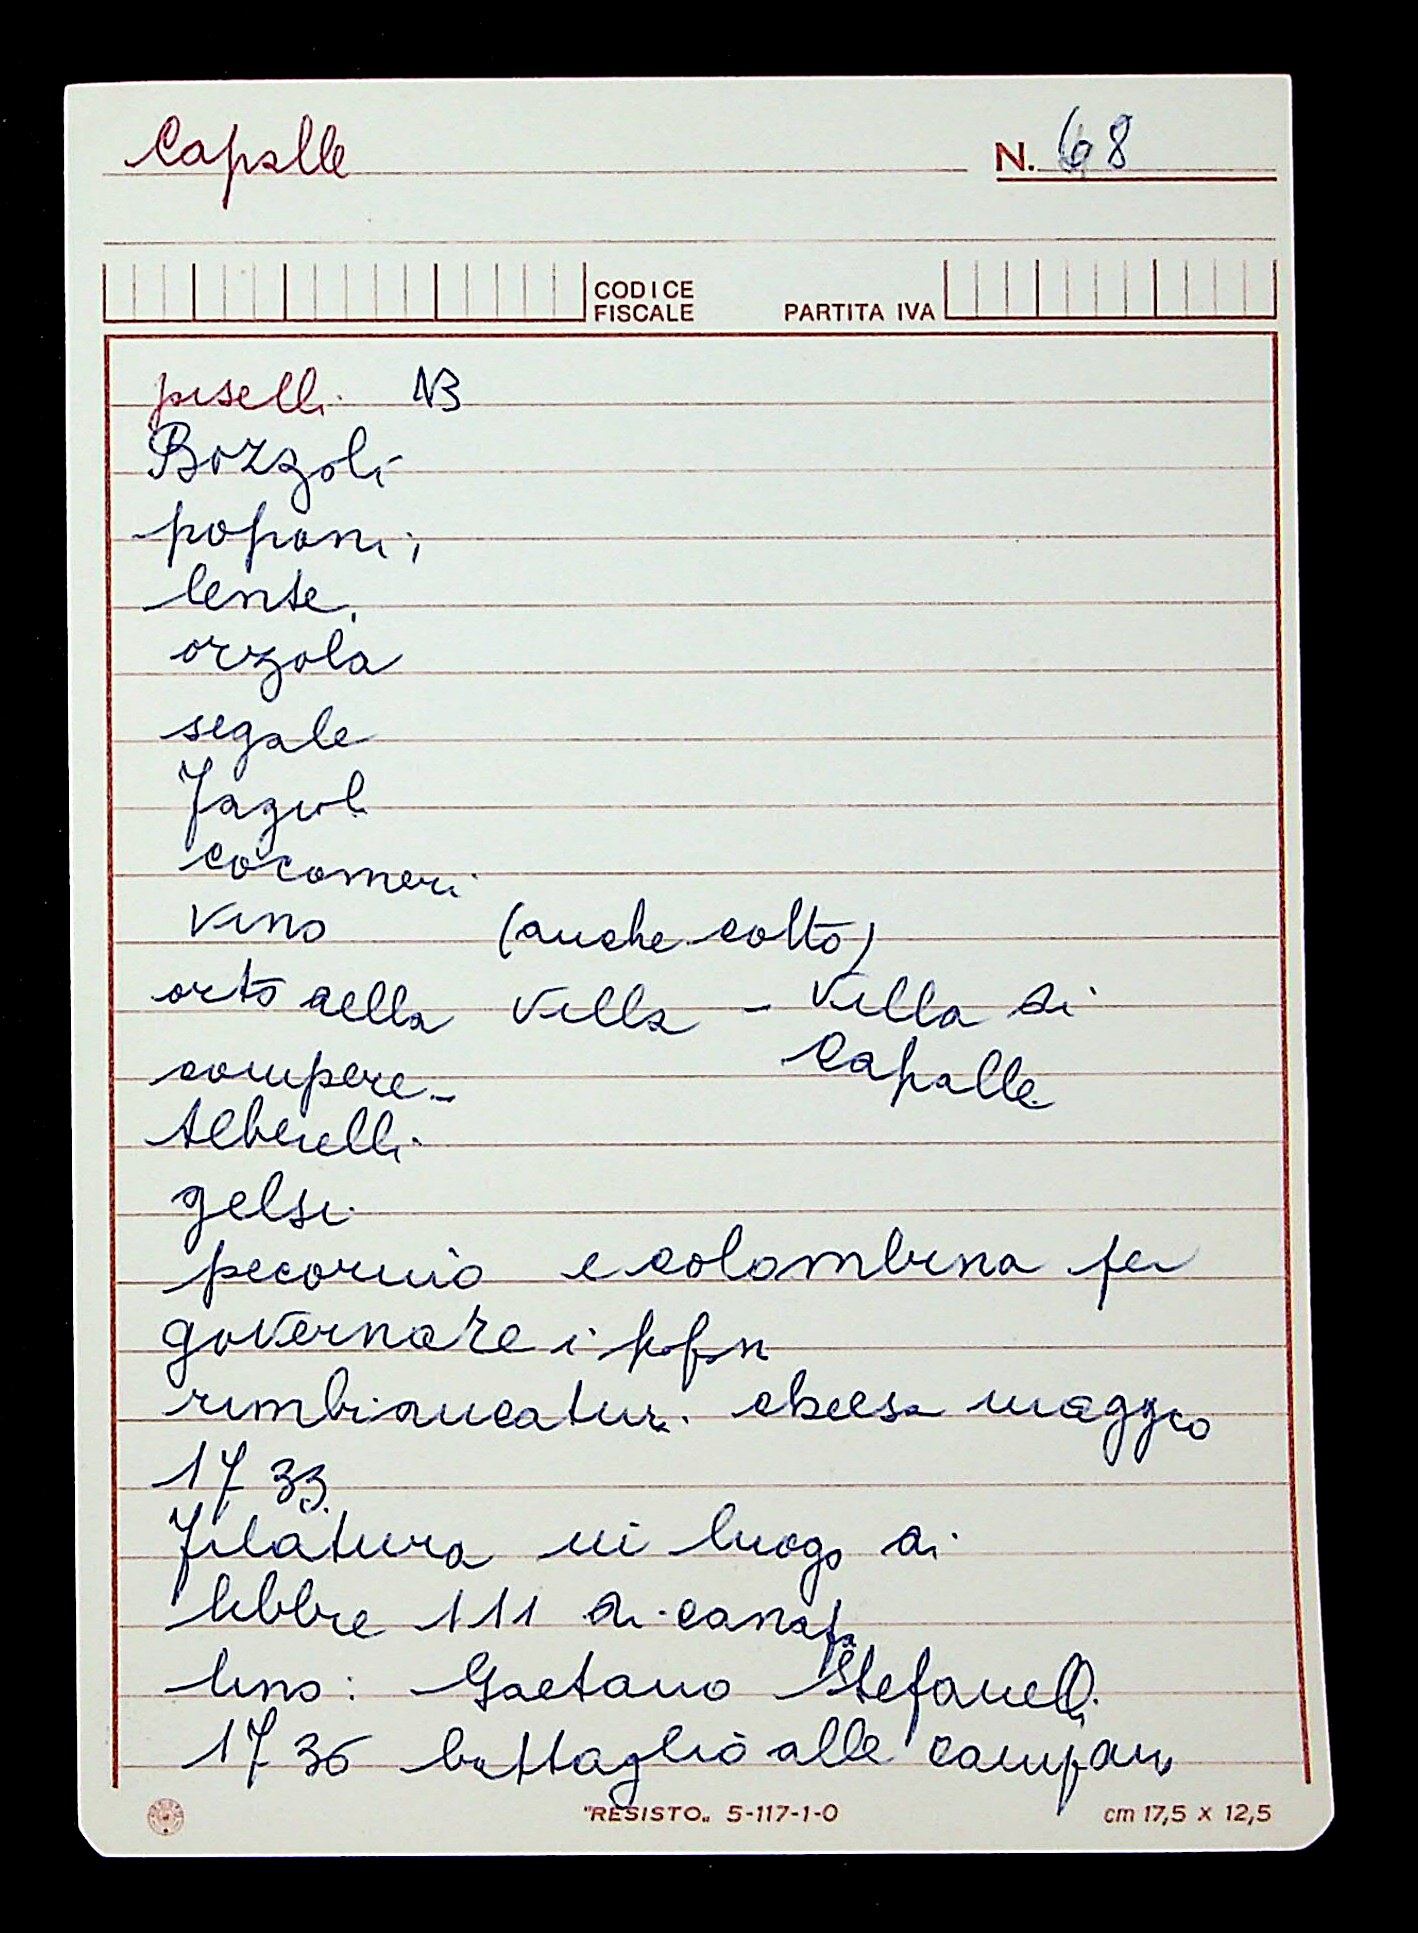 Capalle N. 68
CODICE FISCALE PARTITA IVA
piselli NB
Bozzoli
poponi;
lente.
orzola
segale
fagioli
cocomeri
vino (anche cotto)
orto della Villa - Villa di
Capalle
compere -
Alberelli
gelsi
pecorino e colombina per
governare i
rimbiancatura chiesa maggio
1733
filatura in luogo di
libbre 111 di canapa
lino: Gaetano Stefanelli
1736 battaglio alle campane
"RESISTO„ 5-117-1-0 cm 17,5 x 12,5